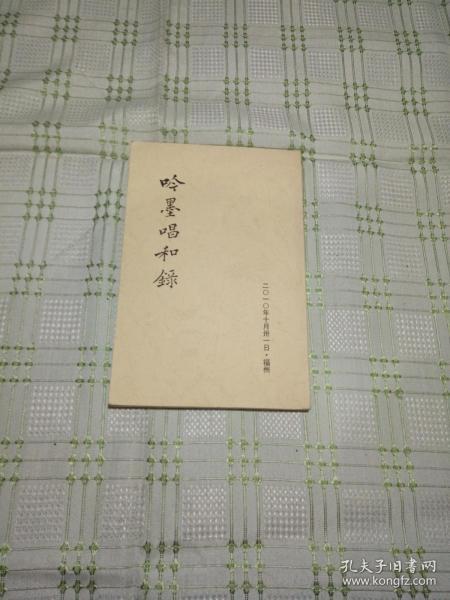 吟墨唱和錄
二〇一〇年十月卅一日·福州
孔夫子旧书网
www.kongfz.com